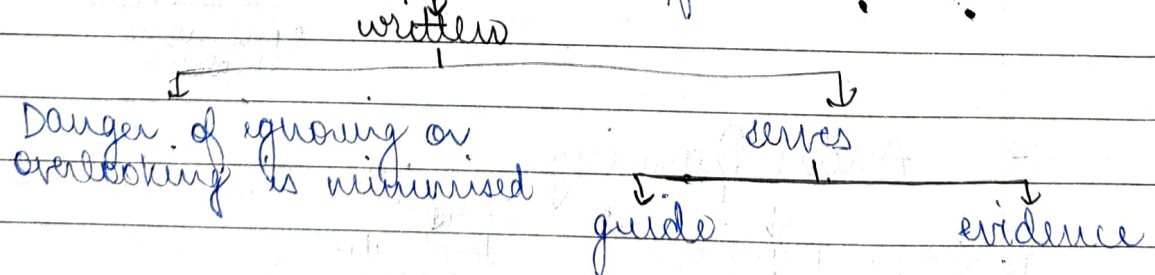 written
Danger of ignoring or serves
overlooking is minimised
guide evidence